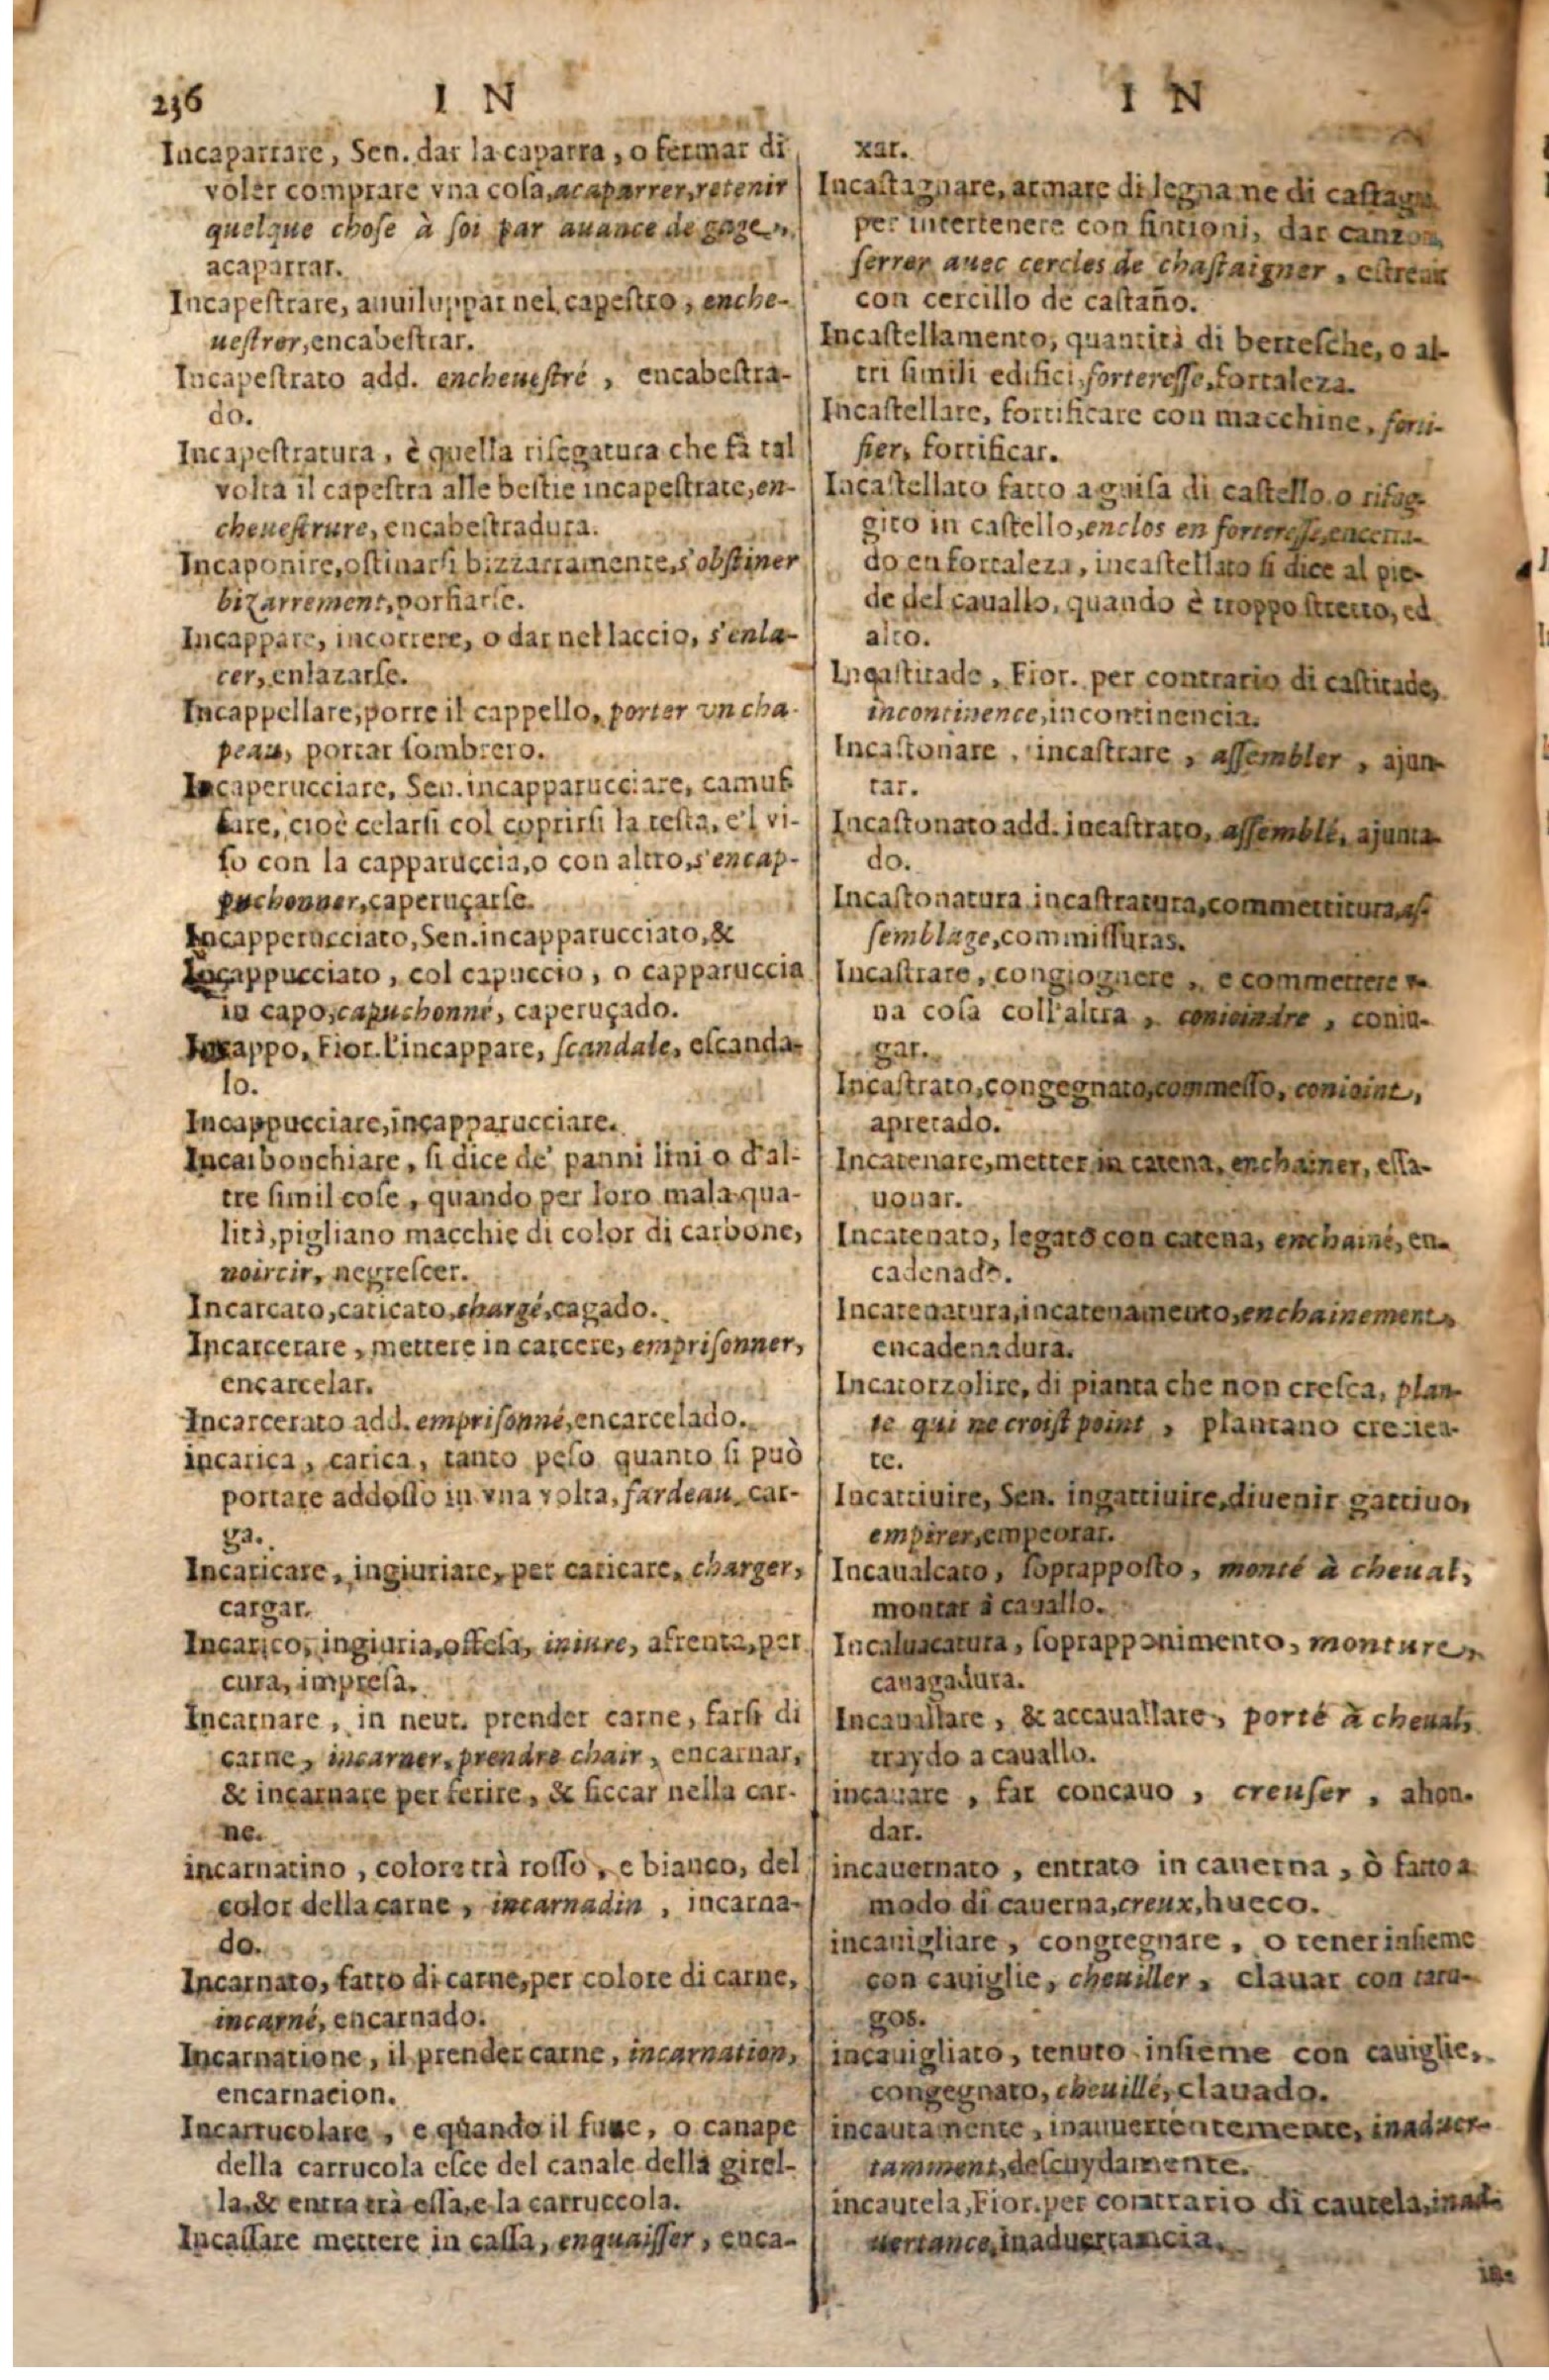 236 I N
Incaparrare, Sen. dar la caparra, o fermar di
voler comprare vna coſa, acaparrer, retenir
quelque choſe à ſoi par auance de gage,
acaparrar.
Incapeſtrare, auuiluppar nel capeſtro, enche-
ueſtrer, encabeſtrar.
Incapeſtrato add. encheueſtré, encabeſtra-
do.
Incapeſtratura, è quella riſegatura che fà tal
volta il capeſtra alle beſtie incapeſtrate, en-
cheueſtrure, encabeſtradura.
Incaponire, oſtinarſi bizzarramente, s'obſtiner
bizarrement, porfiarſe.
Incappare, incorrere, o dar nel laccio, s'enla-
cer, enlazarſe.
Incappellare, porre il cappello, porter vn cha-
peau, portar ſombrero.
Incaperucciare, Sen. incapparucciare, camuf-
fare, cioè celarſi col coprirſi la teſta, e'l vi-
ſo con la capparuccia, o con altro, s'encap-
puchonner, caperuçarſe.
Incapperucciato, Sen. incapparucciato, &
Incappucciato, col capuccio, o capparuccia
in capo, capuchonné, caperuçado.
Incappo, Fior. l'incappare, ſcandale, eſcanda-
lo.
Incappucciare, incapparucciare.
Incarbonchiare, ſi dice de' panni lini o d'al-
tre ſimil coſe, quando per loro mala qua-
lità, pigliano macchie di color di carbone,
noircir, negreſcer.
Incarcato, caricato, chargé, cagado.
Incarcerare, mettere in carcere, empriſonner,
encarcelar.
Incarcerato add. empriſonné, encarcelado.
incarica, carica, tanto peſo quanto ſi può
portare addoſſo in vna volta, fardeau, car-
ga.
Incaricare, ingiuriare, per caricare, charger,
cargar.
Incarico, ingiuria, offeſa, iniure, afrenta, per
cura, impreſa.
Incarnare, in neut. prender carne, farſi di
carne, incarner, prendre chair, encarnar,
& incarnare per ferire, & ficcar nella car-
ne.
incarnatino, colore trà roſſo, e bianco, del
color della carne, incarnadin, incarna-
do.
Incarnato, fatto di carne, per colore di carne,
incarné, encarnado.
Incarnatione, il prender carne, incarnation,
encarnacion.
Incarrucolare, e quando il fune, o canape
della carrucola eſce del canale della girel-
la, & entra trà eſſa, e la carruccola.
Incaſſare mettere in caſſa, enquaiſſer, enca-
I N
xar.
Incaſtagnare, armare di legname di caſtagn
per intertenere con fintioni, dar canzon,
ferrer auec cercles de chaſtaigner, eſtreax
con cercillo de caſtaño.
Incaſtellamento, quantità di berteſche, o al-
tri ſimili edifici, fortereſſe, fortaleza.
Incaſtellare, fortificare con macchine, forti-
fier, fortificar.
Incaſtellato fatto a guiſa di caſtello o rifug-
gito in caſtello, enclos en fortereſſe, encerra-
do en fortaleza, incaſtellato ſi dice al pie-
de del cauallo, quando è troppo ſtretto, ed
alto.
Incaſtitade, Fior. per contrario di caſtitade,
incontinence, incontinencia.
Incaſtonare, incaſtrare, aſſembler, ajun-
tar.
Incaſtonato add. incaſtrato, aſſemblé, ajunta-
do.
Incaſtonatura incaſtratura, commettitura, aſ-
ſemblage, commiſſuras.
Incaſtrare, congiognere, e commettere v-
na coſa coll'altra, conioindre, coniu-
gar.
Incaſtrato, congegnato, commeſſo, conioint,
apretado.
Incatenare, metter in catena, enchainer, eſla-
uonar.
Incatenato, legato con catena, enchainé, en-
cadenado.
Incatenatura, incatenamento, enchainement,
encadenadura.
Incatorzolire, di pianta che non creſca, plan-
te qui ne croiſt point, plantano
te.
Incattiuire, Sen. ingattiuire, diuenir gattiuo,
empirer, empeorar.
Incaualcato, ſoprappoſto, monté à cheual,
montar à cauallo.
Incaluacatura, ſoprapponimento, monture,
cauagadura.
Incauallare, & accauallare, porté à cheual,
traydo a cauallo.
incauare, far concauo, creuſer, ahon-
dar.
incauernato, entrato in cauerna, ò fatto a
modo di cauerna, creux, hueco.
incauigliare, congregnare, o tener inſieme
con cauiglie, cheuiller, clauar con tara-
gos.
incauigliato, tenuto inſieme con cauiglie,
congegnato, cheuillé, clauado.
incautamente, inauuertentemente, inaduer-
tamment, deſcuydamente.
incautela, Fior. per contrario di cautela, inad-
uertance, inaduertancia.
in-